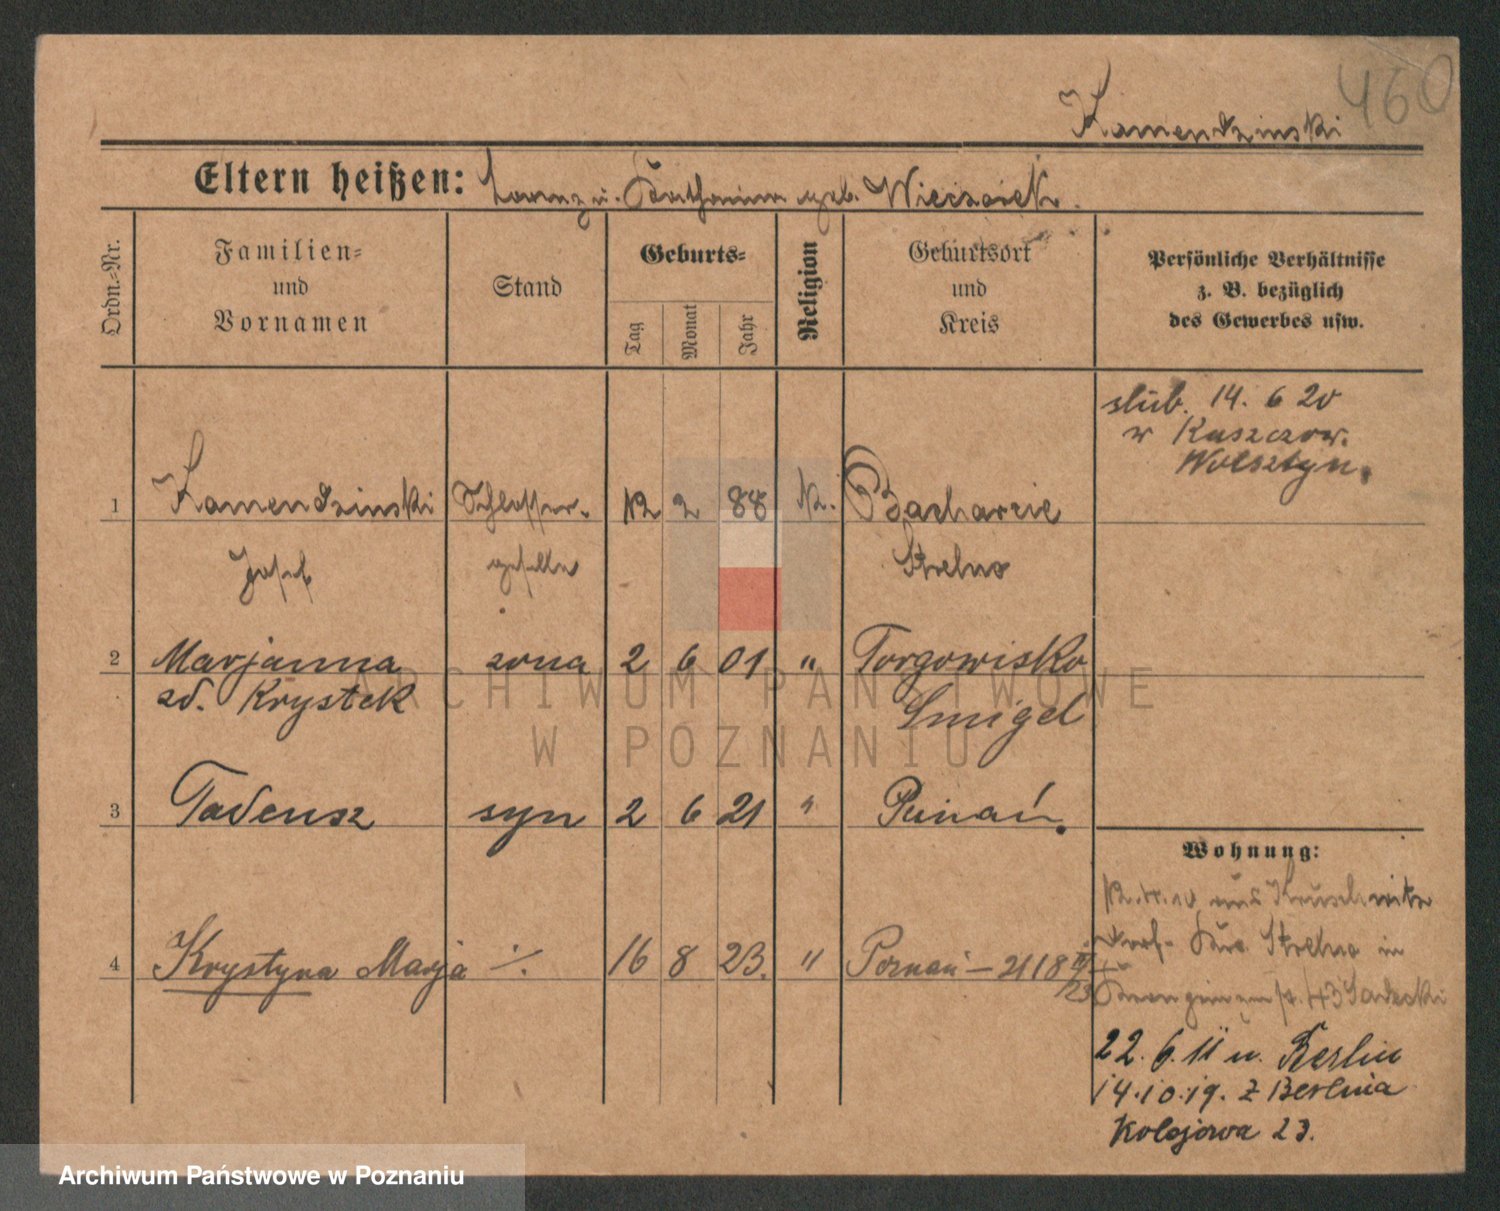 460
Kamendzinski
Eltern heißen: Lorenz u. Katharina geb. Wieczorek.
Ordn.-Nr.
Familien-
und
Vornamen
Stand
Geburts-
Tag
Monat
Jahr
Religion
Geburtsort
und
Kreis
Persönliche Verhältnisse
z. B. bezüglich
des Gewerbes usw.
ślub. 14. 6 20
w Kaszczor.
Wolsztyn.
1 Kamendzinski Schlosser- 2 88 K. Bacharcie
Josef geselle Strelno
2 Marjanna żona 2 6 01 " Torgowisko
zd. Krystek Smigel
3 Tadeusz syn 2 6 21 "
4 Krystyna Marja ·/. 16 8 23. " Poznań – 21/8
23
Wohnung:
aus Kruschwitz
Strelno in
43 Sadecki
22. 6. 11 n. Berlin
14.10.19. z Berlina
Kolejowa 23.
ARCHIWUM PAŃSTWOWE
W POZNANIU
Archiwum Państwowe w Poznaniu